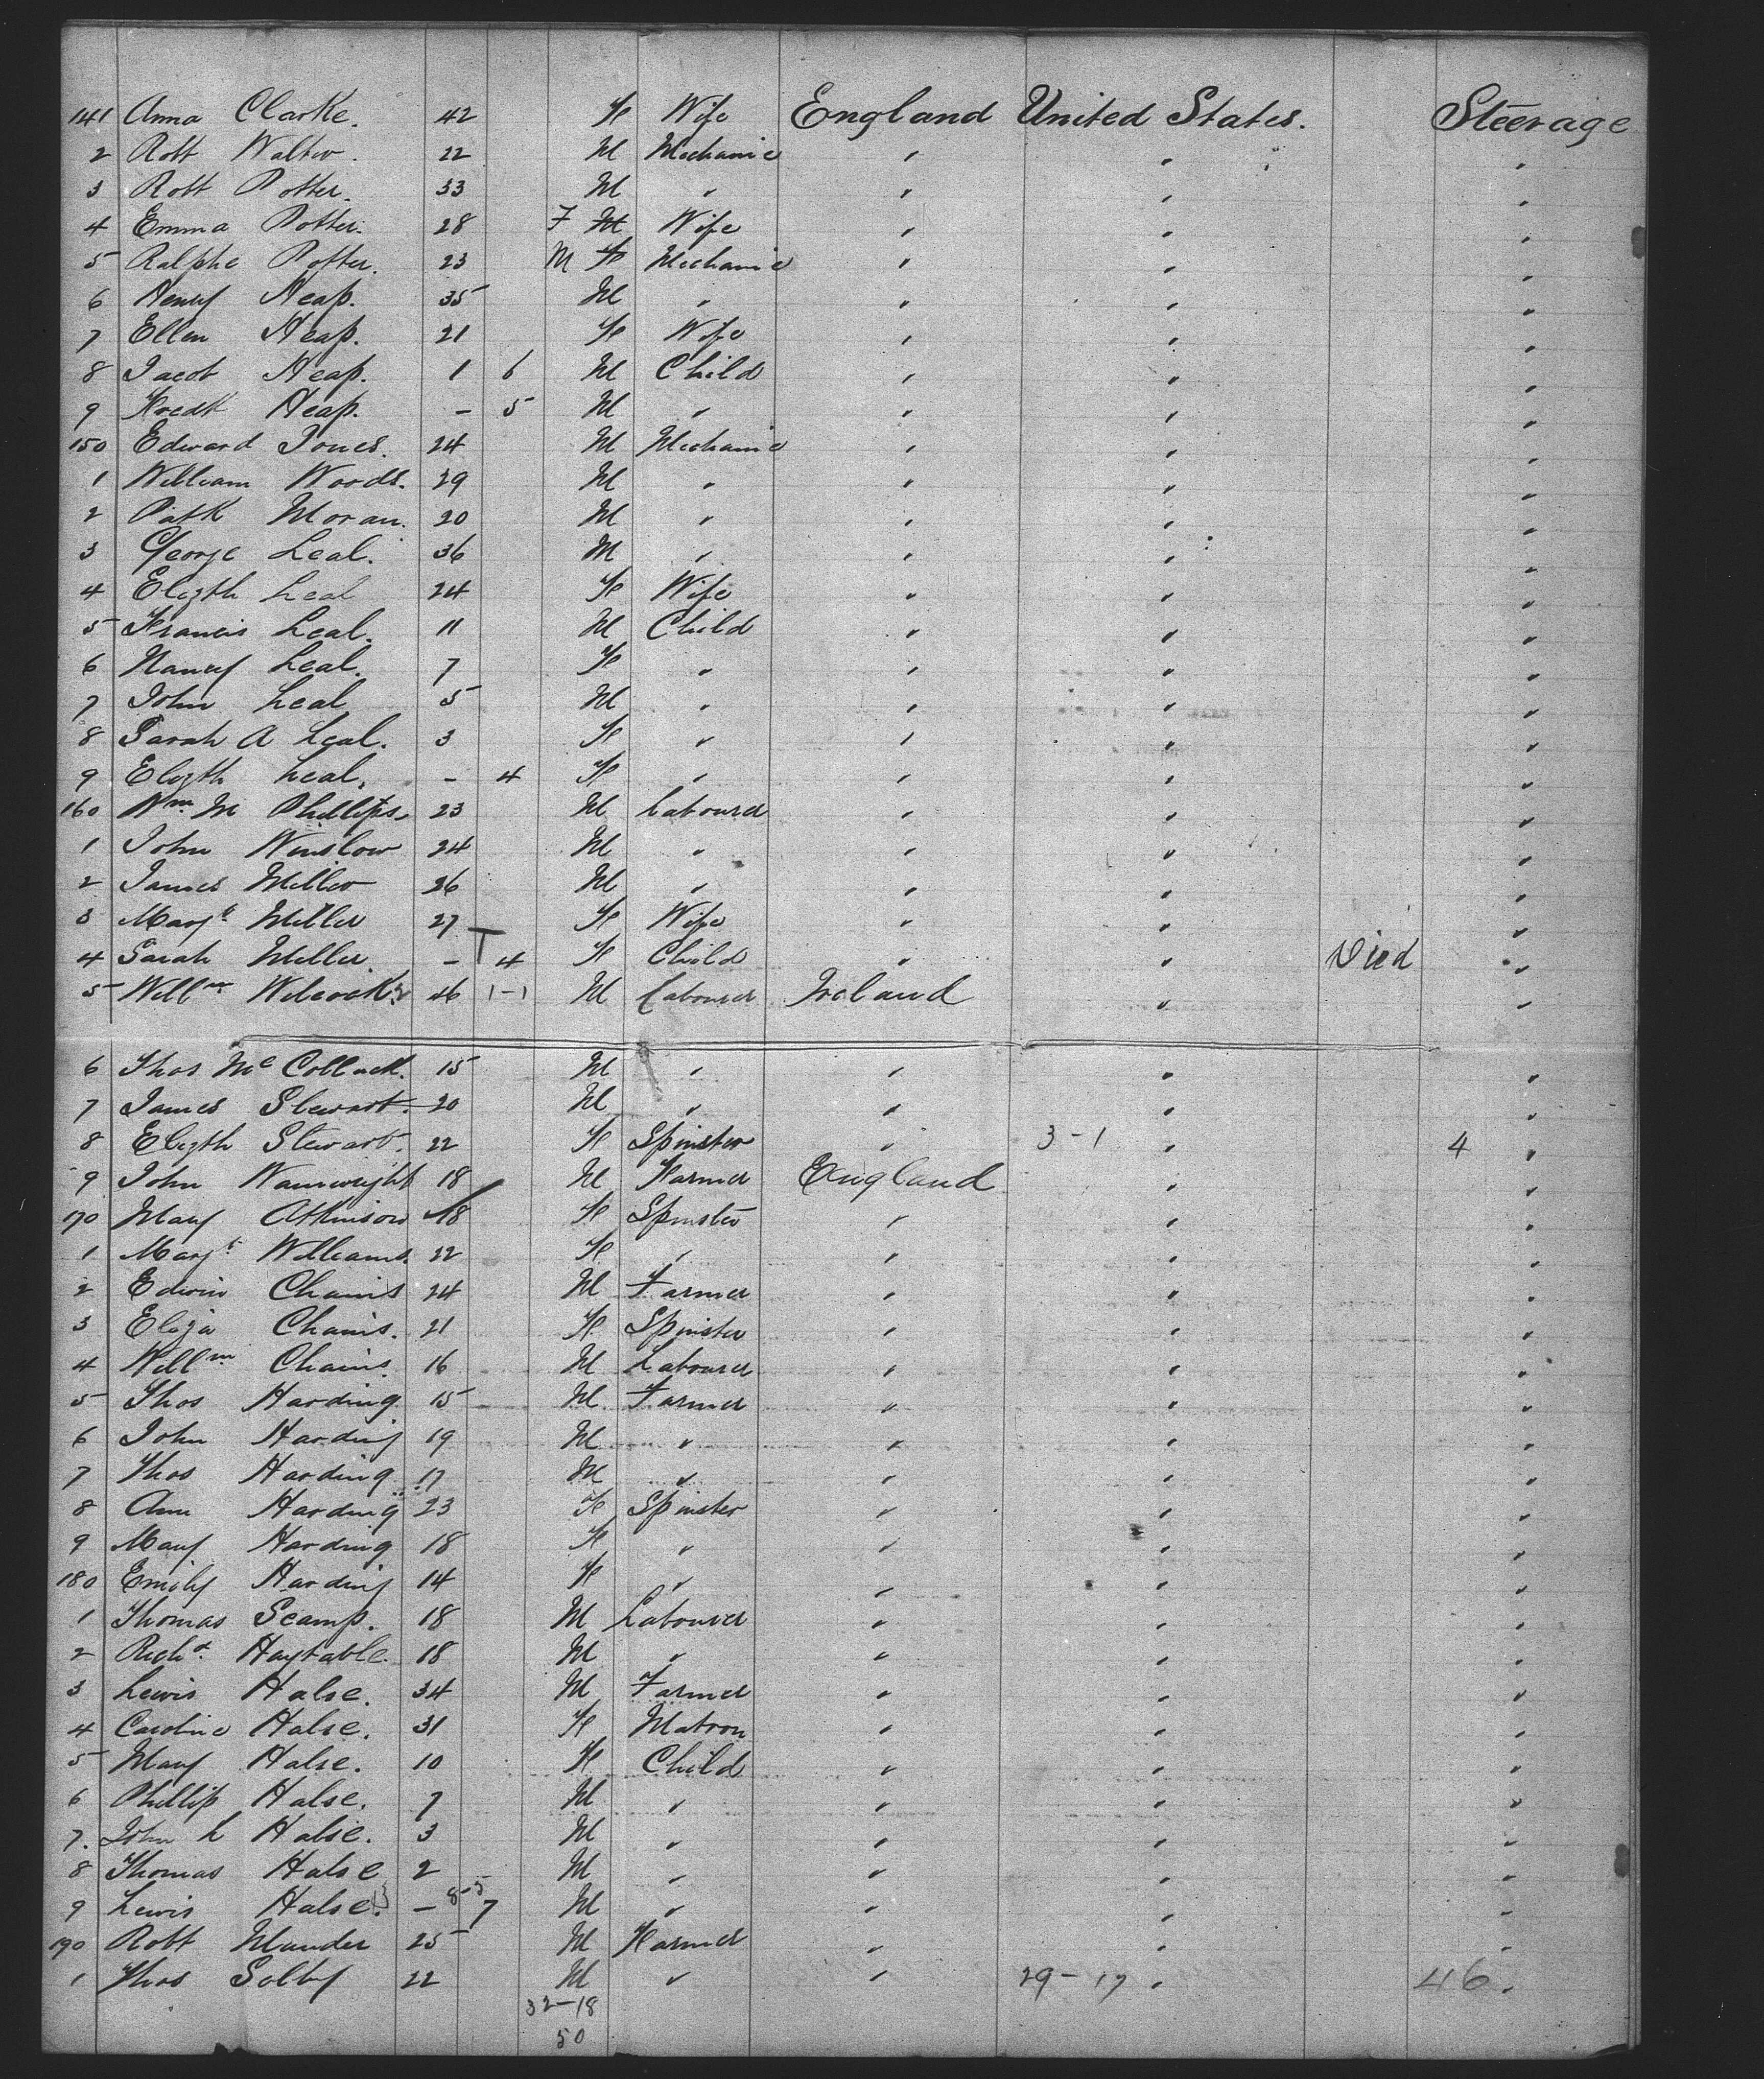 141 Anna Clarke. 42 F Wife England United States. Steerage
2 Robt Walter. 22 M Mechanic " " "
3 Robt Potter. 33 M " " " "
4 Emma Potter. 28 F M Wife " " "
5 Ralphe Potter. 23 M F Mechanic " " "
6 Henry Heap. 35 M " " " "
7 Ellen Heap. 21 F Wife " " "
8 Jacob Heap. 1 6 M Child " " "
9 Fredk Heap. - 5 M " " " "
150 Edward Jones. 24 M Mechanic " " "
1 William Woods. 29 M " " " "
2 Patk Moran. 20 M " " " "
3 George Leal. 36 M " " " "
4 Elizth Leal 24 F Wife " " "
5 Francis Leal. 11 M Child " " "
6 Nancy Leal. 7 F " " " "
7 John Leal 5 M " " " "
8 Sarah A Leal. 3 F " " " "
9 Elizth Leal. - 4 F " " " "
160 Wm. M Phillips 23 M Labourer " " "
1 John Winslow 24 M " " " "
2 James Miller 26 M " " " "
3 Margt Miller 27 F Wife " " "
4 Sarah Miller - 4 F Child " " Died "
5 Willm Wilcock 46 1-1 M Labourer Ireland " "
6 Thos Mc Colluck. 15 M " " " "
7 James Stewart. 20 M " " " "
8 Elizth Stewart. 22 F Spinster " 3-1 " 4 "
9 John Wainwright 18 M Farmer England " "
170 Mary Atkinson 18 F Spinster " " "
1 Margt Williams. 22 F " " " "
2 Edwin Chains 24 M Farmer " " "
3 Eliza Chains. 21 F Spinster " " "
4 Willm Chains. 16 M Labourer " " "
5 Thos Harding 15 M Farmer " " "
6 John Harding 19 M " " " "
7 Thos Harding 17 M " " " "
8 Ann Harding 23 F Spinster " " "
9 Mary Harding 18 F " " " "
180 Emily Harding 14 F " " " "
1 Thomas Scamp. 18 M Labourer " " "
2 Richd. Haytable. 18 M " " " "
3 Lewis Halse. 34 M Farmer " " "
4 Caroline Halse. 31 F Matron " " "
5 Mary Halse. 10 F Child " " "
6 Phillip Halse. 7 M " " " "
7. John L Halse. 3 M " " " "
8 Thomas Halse 2 M " " " "
9 Lewis Halse. - 8-5 7 M " " " "
190 Robt Mander 25 M Farmer " " "
1 Thos Selby 22 M " " 29-17 " 46 "
32-18
50